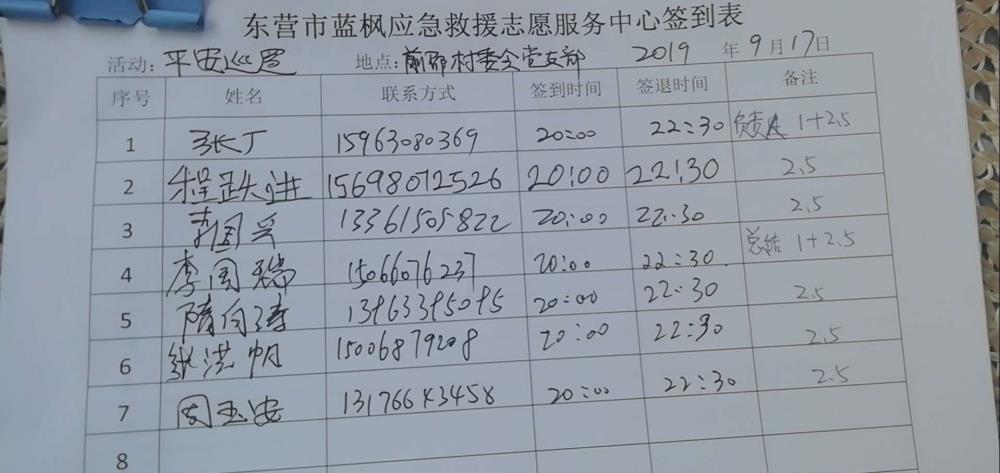 东营市蓝枫应急救援志愿服务中心签到表
活动: 平安巡逻 地点: 前郭村委会党支部 2019 年 9 月 17 日
序号 姓名 联系方式 签到时间 签退时间 备注
1 张丁 15963080369 20:00 22:30 负责人 1+2.5
2 程跃进 15698072526 20:00 22:30 2.5
3 李国兵 13361505822 20:00 22:30 2.5
4 李国瑞 15066076237 20:00 22:30 总结 1+2.5
5 隋向涛 13963395095 20:00 22:30 2.5
6 张洪帅 15006879208 20:00 22:30 2.5
7 周玉安 13176643458 20:00 22:30 2.5
8